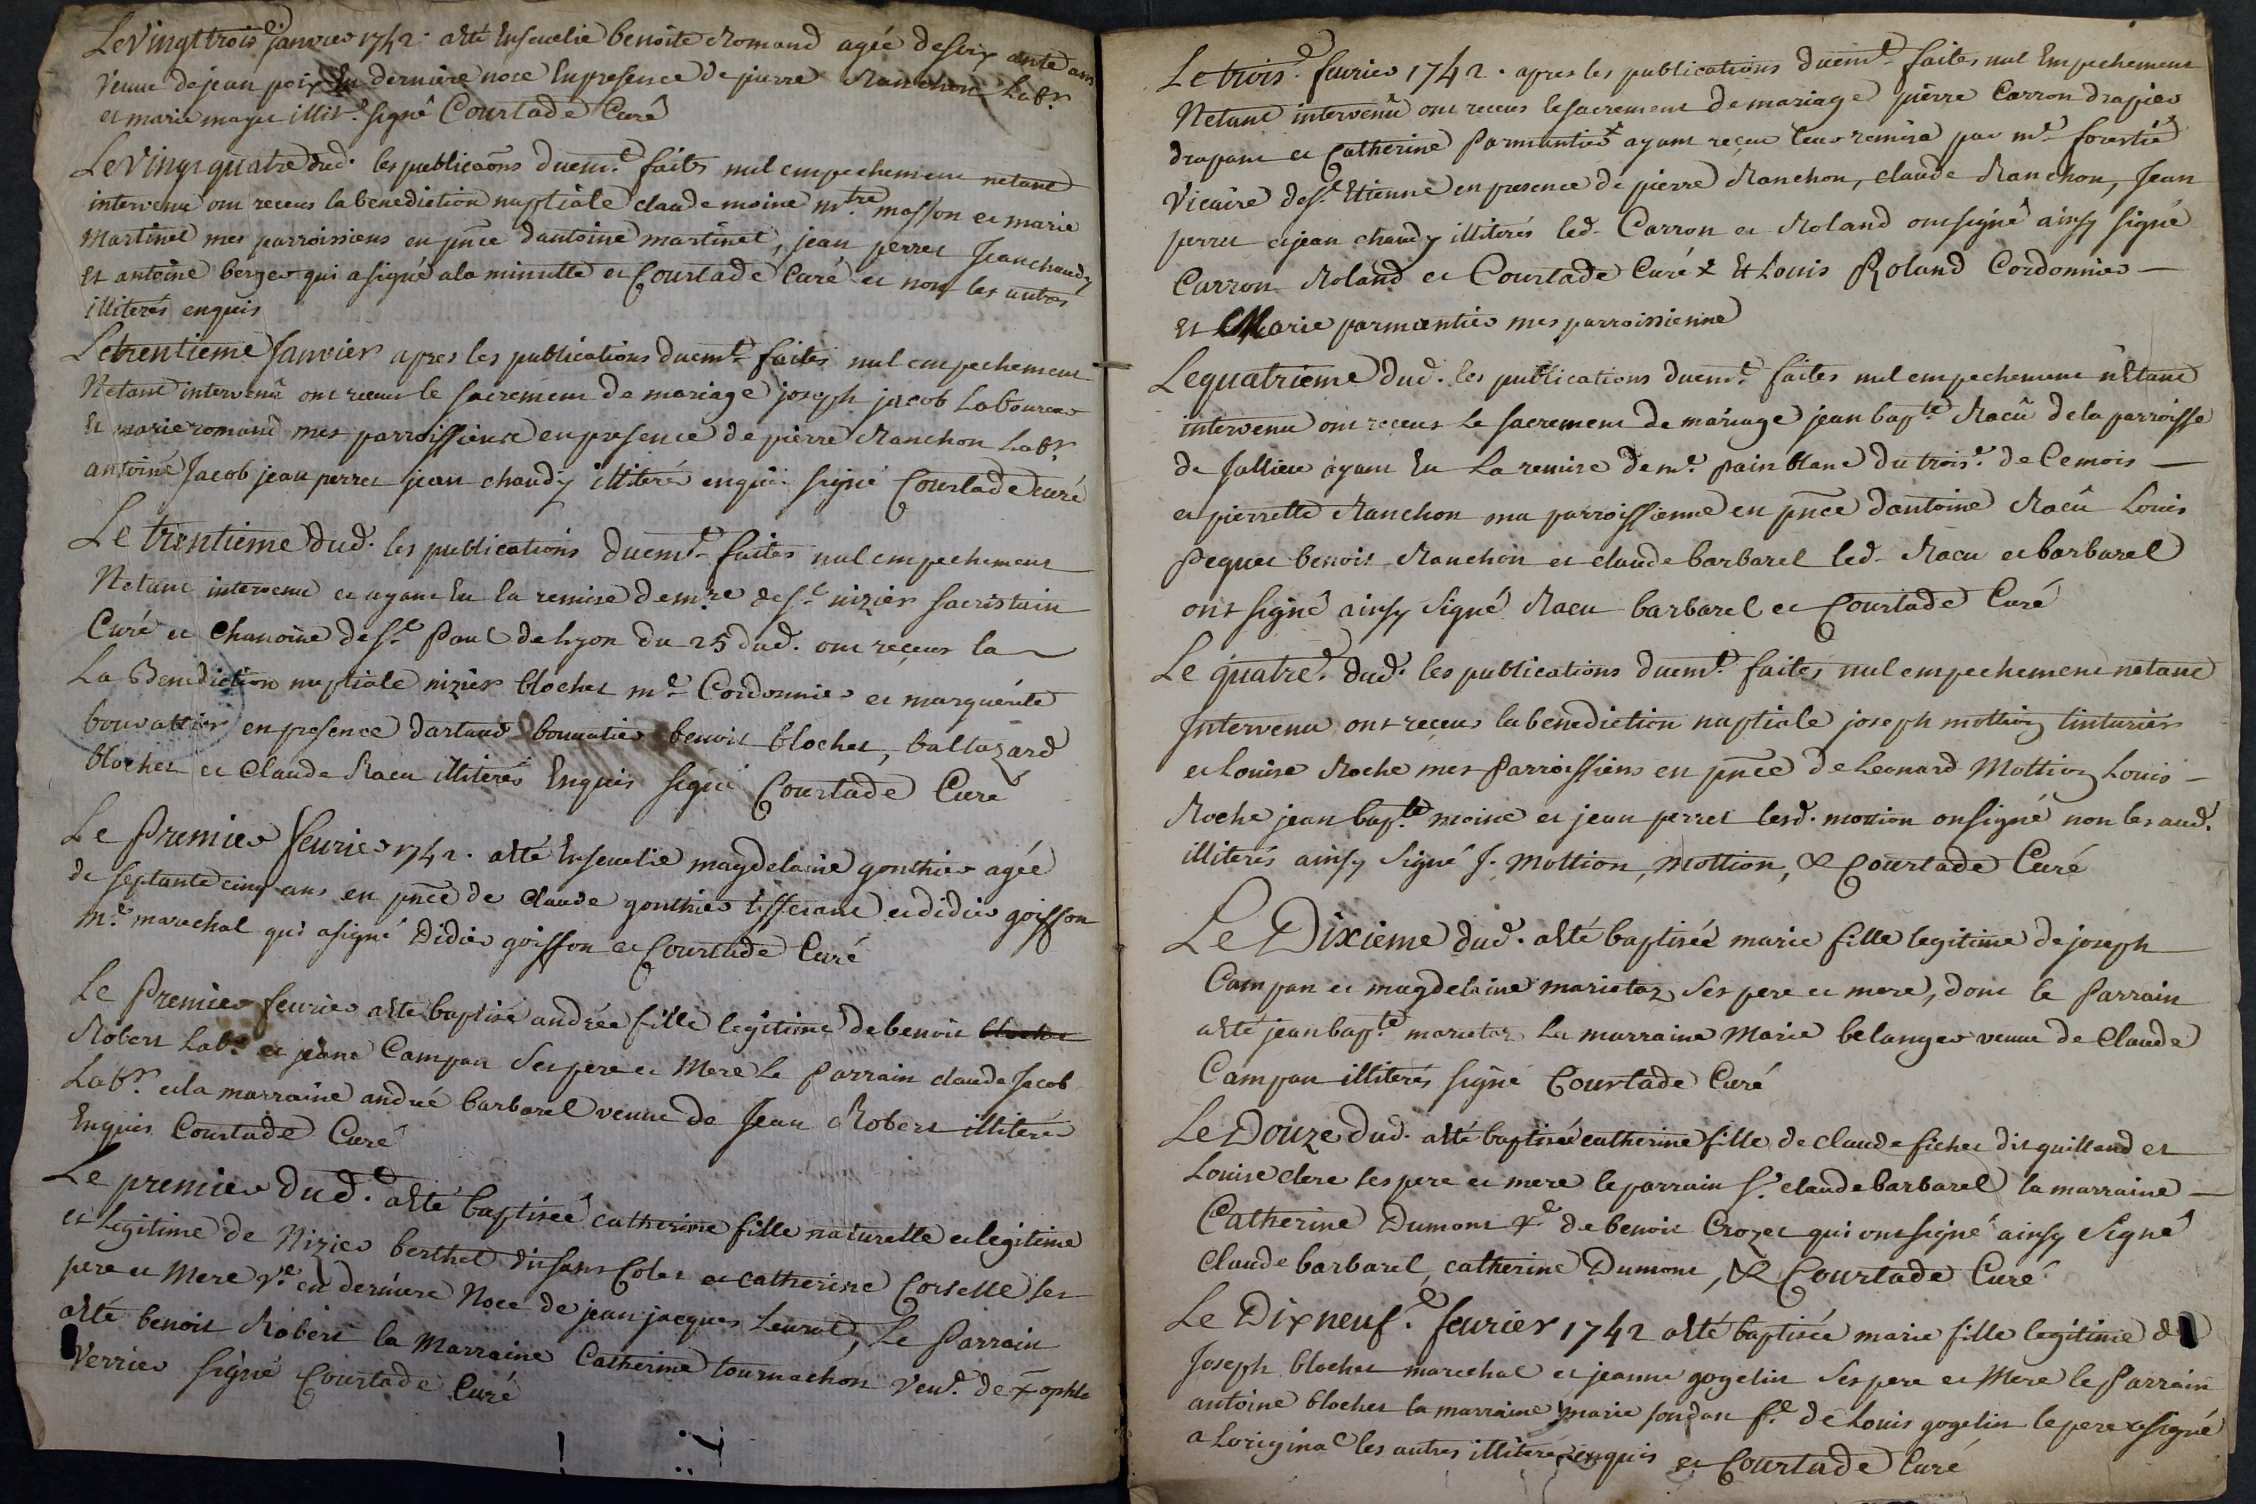 Le Vingt trois.e Janvier 1742. a été Ensevelie benoite Romand agée de soixante ans
veuve de jean poix En derniere noce En presence de pierre Ranchon Labr.
et marie illit.r signé Courtade Curé
Le Vingt quatre dud. les publicaons duem.t faits nul empechement netant
intervenu ont receus la benediction nuptiale claude moine m.tre masson et marie
Martinet mes parroissiens en pnce dantoine martinet, jean perret Jean chaudy
Et antoine berger qui a signé a la minutte et Courtade Curé et non les autres
illiterés enquis
Le trentieme Janvier apres les publications duemt. faites nul empechement
Netant intervenu ont receus le sacrement de mariage joseph jacob Laboureur
Et marie romand mes parroissiens en presence de pierre Ranchon Labr.
antoine Jacob jean perret jean chaudy illiterés enquis signé Courtade curé
Le trentieme dud. les publications duem.t faites nul empechement
Netant intervenu et ayant Eu la remise de m.re de s.t nizier sacristain
Curé et Chanoine de s.t Paul de Lyon du 25 dud. ont receus la
La Benediction nuptiale nizier blochet m.e Cordonnier et marguerite
bouvattier en presence dartaud bouvatier benoit blochet, baltazard
blochet et Claude Racu illiterés Enquis signé Courtade Curé
Le Premier fevrier 1742. a été Ensevelie magdelaine gonthier agée
de septante cinq ans en pnce de Claude gonthier tisserant et didier goisson
m.e marechal qui a signé Didier goisson et Courtade Curé
Le Premier fevrier a été baptisé andrée fille legitime de benoit
Robert Lab.r et jeane Campan Ses pere et Mere Le Parrain claude Jacob
Labr. et la marraine andré barbarel veuve de Jean Robert illiterés
Enquis Courtade Curé
Le premier dud. a été baptisée catherine fille naturelle et legitime
et legitime de Nizier berthet disans Colet et catherine Corselle ses
pere et Mere v.e en derniere Noce de jean jacques Leurat, Le Parrain
a été benoit Robert la Marraine Catherine tournachon Veuv.e de Xophle
Verrier signé Courtade Curé
Le trois.e fevrier 1742. apres les publications duem.t faites nul Empechement
Netant intervenu ont receus le sacrement de mariage pierre Carron drapier
drapant et Catherine Parmantier x ayant reçue leur remise par m.e forestié
Vicaire de s.t Etienne en presence de pierre Ranchon, claude Ranchon, Jean
perret et jean chaudy illiterés led. Carron et Roland ont signé ainsy signé
Carron Roland et Courtade Curé x Et Louis Roland Cordonnier
Et Marie parmentier mes parroissienne
Le quatrieme dud. les publications duem.t faites nul empechement n'Etant
intervenu ont receus Le sacrement de mariage jean bap.te Racu de la parroisse
de Jallieu ayant Eu La remise de m.e painblanc du trois.e de Cemois
et pierrette Ranchon ma parroissienne en pnce dantoine Racu Louis
Pequet benoit Ranchon et claude barbarel led. Racu et barbarel
ont signé ainsy signé Racu barbarel et Courtade Curé
Le quatre. dud. les publications duem.t faites nul empechement netant
Intervenu ont receus la benediction nuptiale joseph mottion tinturier
et Louise Roche mes Parroissiens en pnce de Leonard Mottion Louis
Roche jean bap.te moine et jean perret lesd. mottion on signé non les aud.
illiterés ainsy signé J. Mottion, Mottion, & Courtade Curé
Le Dixieme dud. a été baptisée marie fille legitime de joseph
Campan et magdelaine marietaz ses pere et mere, dont le Parrain
a été jean bap.te marietaz La marraine Marie belanger veuve de Claude
Campan illiterés signé Courtade Curé
Le Douze dud. a été baptisée catherine fille de claude fichet dit guilland et
Louise clere ses pere et mere le parrain s.r claude barbarel la marraine
Catherine Dumont v.e de benoit Crozet qui ont signé ainsy signé
Claude barbarel, catherine Dumont, & Courtade Curé
Le Dixneuf.e fevrier 1742 a été baptisée marie fille legitime de
Joseph blochet marechal et jeanne gogelin Ses pere et Mere le Parrain
antoine blochet la marraine marie f.e de Louis gogelin le pere a signé
a Loriginal les autres illiterés enquis et Courtade Curé